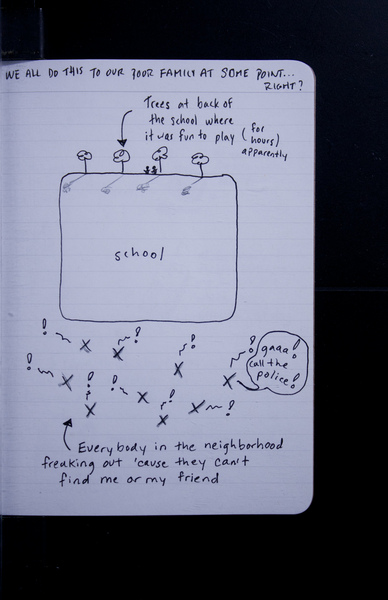 WE ALL DO THIS TO OUR POOR FAMILY AT SOME POINT...
RIGHT?
Trees at back of
the school where
it was fun to play (for
hours)
apparently
school
gaaa!
call the
police!
Everybody in the neighborhood
freaking out 'cause they can't
find me or my friend